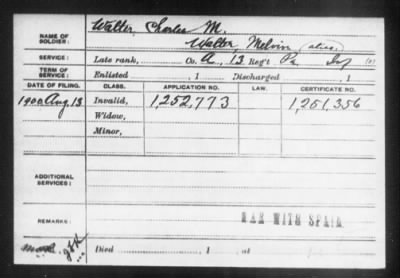 NAME OF SOLDIER:
Walter, Charles M.
Walter, Melvin (alias)
SERVICE:
Late rank, Co. A, 13 Reg't Pa Inf
TERM OF SERVICE:
Enlisted , 1 Discharged , 1
DATE OF FILING. CLASS. APPLICATION NO. LAW. CERTIFICATE NO.
1900 Aug. 13 Invalid, 1,252,773 1,251,356
Widow,
Minor,
ADDITIONAL SERVICES:
REMARKS:
WAR WITH SPAIN
Died , 1 at